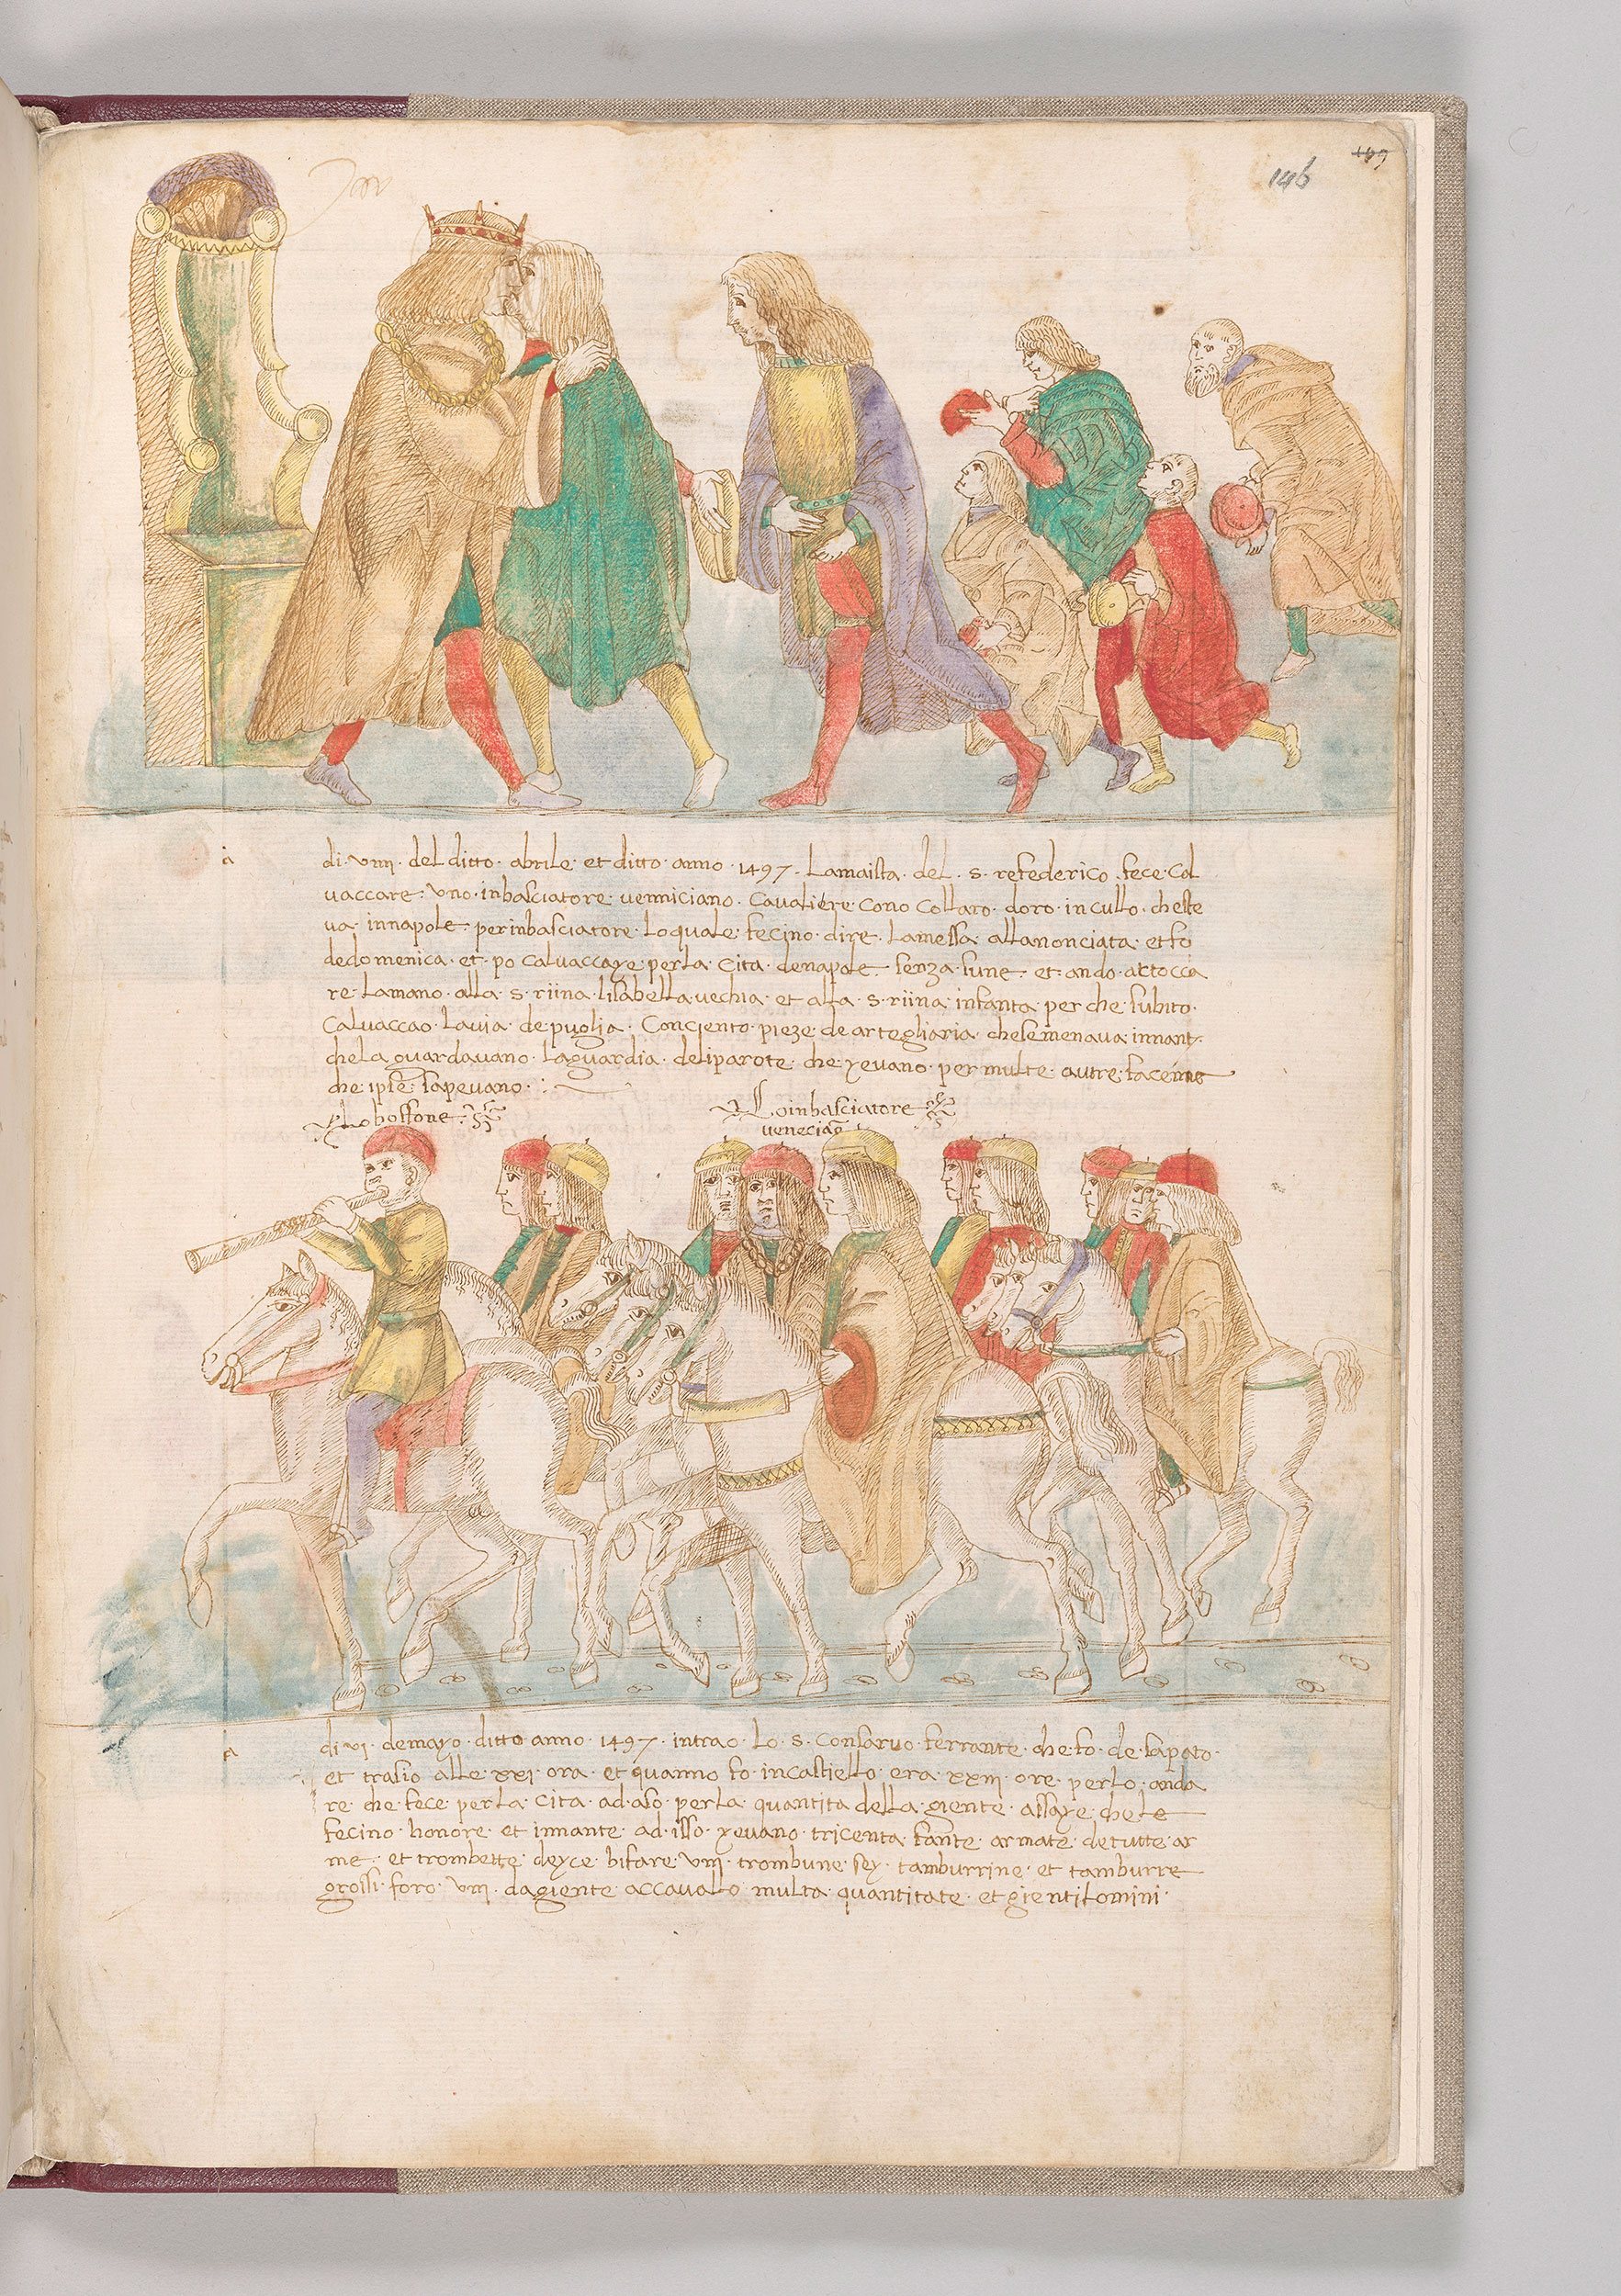 146
149
a di · viiii · del ditto · abrile · et ditto · anno · 1497 · Lamaista · del · s · re federico · fece · Cal
vaccare · vno · inbasciatore · venniciano · Cavaliere cono Collaro · doro · in cullo · cheste
va · innapole · per inbasciatore · Lo quale · fecino · dire · La messa allanonciata · et fo
dedomenica · et · po calvaccaye per la · Cita · denapole · senza · fune · et · ando · attocca
re · Lamano · alla · s · riina · lisabella vechia · et alla · s · riina · infanta · per che subito ·
Calvaccao · la via · de puoglia · Conciento · pieze · de artegliaria · che se menava innant
che la guardavano · la guardia · deli parote · che yevano · per multe · autre facenne
che ipse · sapevano ·
Lo boffone
Lo inbasciatore
veneciao
a di vi · de mayo · ditto anno · 1497 · intrao · Lo · s · Consarvo · ferrante · che fo · de sapato ·
et trasio alle · xxi · ora · et quanno fo · incastiello · era · xxiii · ore · per lo · anda
re · che fece · per la · Cita · ad aso · per la · quantita della · giente · assaye · che le
fecino · honore · et innante · ad · isso · yevano · tricenta · fante · armate · de tutte · ar
me · et trombette · deyce · bifare · viii · trombune · sey · tamburrine · et tamburre
grossi · foro · viii · da giente accavallo · multa · quantitate · et gientilomini ·